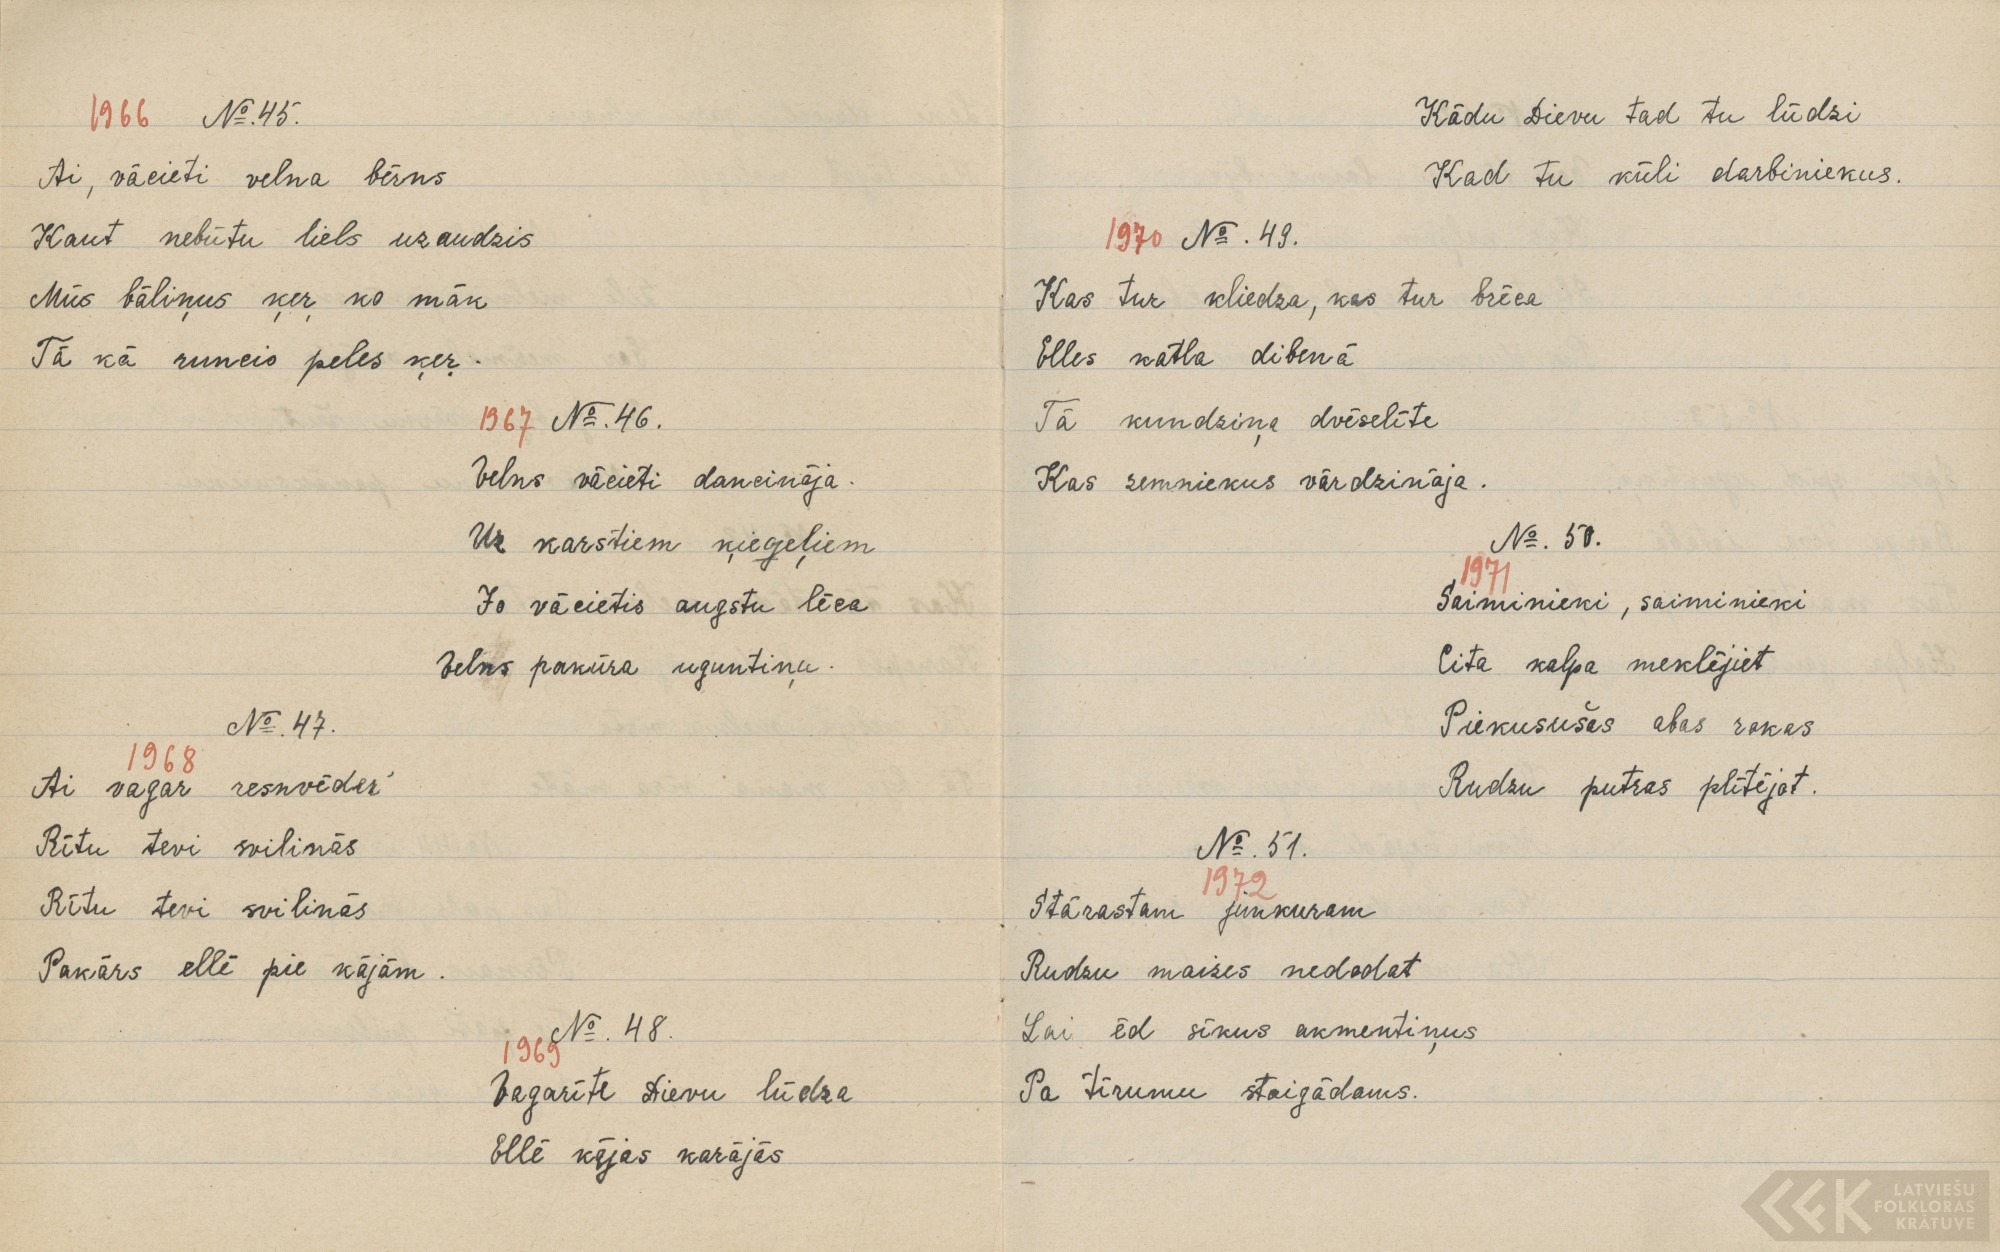 1966 No. 45.
Ai, vācieti velna bērns
Kaut nebūtu liels uzaudzis
Mūs bāliņus ķeŗ ko māk
Tā kā runcis peles ķeŗ.
1967 No. 46.
Velns vācieti dancināja.
Uz karstiem ķieģeļiem
Jo vācietis augstu lēca
Velns pakūra uguntiņu.
No. 47.
1968
Ai vagar resnvēder'
Rītu tevi svilinās
Rītu tevi svilinās
Pakārs ellē pie kājām.
No. 48.
1969
Vagarīte Dievu lūdza
Ellē kājas karājās
Kādu Dievu tad tu lūdzi
Kad tu kūli darbiniekus.
1970 No. 49.
Kas tur kliedza, kas tur brēca
Elles katla dibenā
Tā kundziņa dvēselīte
Kas zemniekus vārdzināja.
No. 50.
1971
Saiminieki, saiminieki
Cita kalpa meklējiet
Piekusušas abas rokas
Rudzu putras plītējot.
No. 51.
1972
Stārastam junkuram
Rudzu maizes nedodat
Lai ēd sīkus akmentiņus
Pa tīrumu staigādams.
LATVIEŠU
FOLKLORAS
KRĀTUVE